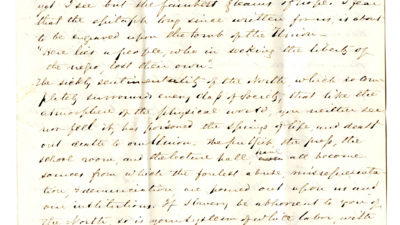 yet I see but the faintest gleams of hope. I fear
that the epitaph long since written for us, is about
to be engraved upon the tomb of the Union—
"Here lies a people, who in seeking the liberty of
the negro, lost their own."
The sickly sentimentality of the North, which so com-
pletely surrounds every class of Society, that like the
atmosphere of the physical world, you neither see
nor feel it, has poisoned the springs of life, and dealt
out death to our Union. The pulpit, the press, the
school room and the lecture hall, have all become
sources from which the foulest abuse, misrepresenta-
tion, & denunciation are poured out upon us and
our institutions. If Slavery be abhorrent to you of
the North, so is your system of white labor, with